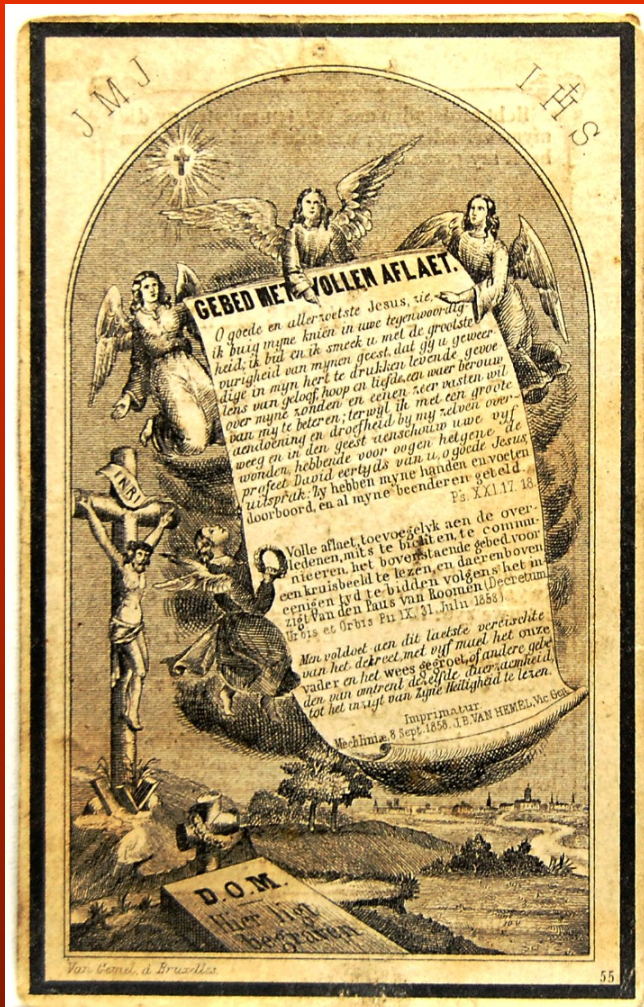 J.M.J
IHS
GEBED MET VOLLEN AFLAET.
O goede en allerzoetste Jesus, zie,
ik buig myne knien in uwe tegenwoordig
heid; ik bid en ik smeek u met de grootste
vurigheid van mynen geest, dat gy u geweer
dige in myn hert te drukken levende gevoe
lens van geloof, hoop en liefde, een waer berouw
over myne zonden en eenen zeer vasten wil
van my te beteren; terwyl ik met een groote
aendoening en droefheid by my zelven over-
weeg en in den geest aenschouw uwe vyf
wonden, hebbende voor oogen hetgene de
profeet David eertyds van u, o goede Jesus,
uitsprak: Zy hebben myne handen en voeten
doorboord, en al myne beenderen geteld.
Ps. XXI.17.18.
Volle aflaet, toevoegelyk aen de over-
ledenen, mits te bichten, te commu-
niceeren, het bovenstaende gebed, voor
een kruisbeeld te lezen, en daerenboven
eenigen tyd te bidden volgens het in
zigt van den Paus van Roomen (Decretum
Urbis et Orbis Pii IX. 31. Julii 1858).
Men voldoet aen dit laetste vereischte
van het dekreet, met vyf mael het onze
vader en het wees gegroet, of andere gebe
den van omtrent dezelfde duerzaemheid,
tot het inzigt van Zyne Heiligheid te lezen.
Imprimatur
Mechliniæ, 8 Sept. 1858. J.B. VAN HEMEL, Vic. Gen.
INRI
D.O.M.
Hier ligt
begraven
Van Gemel, à Bruxelles.
55